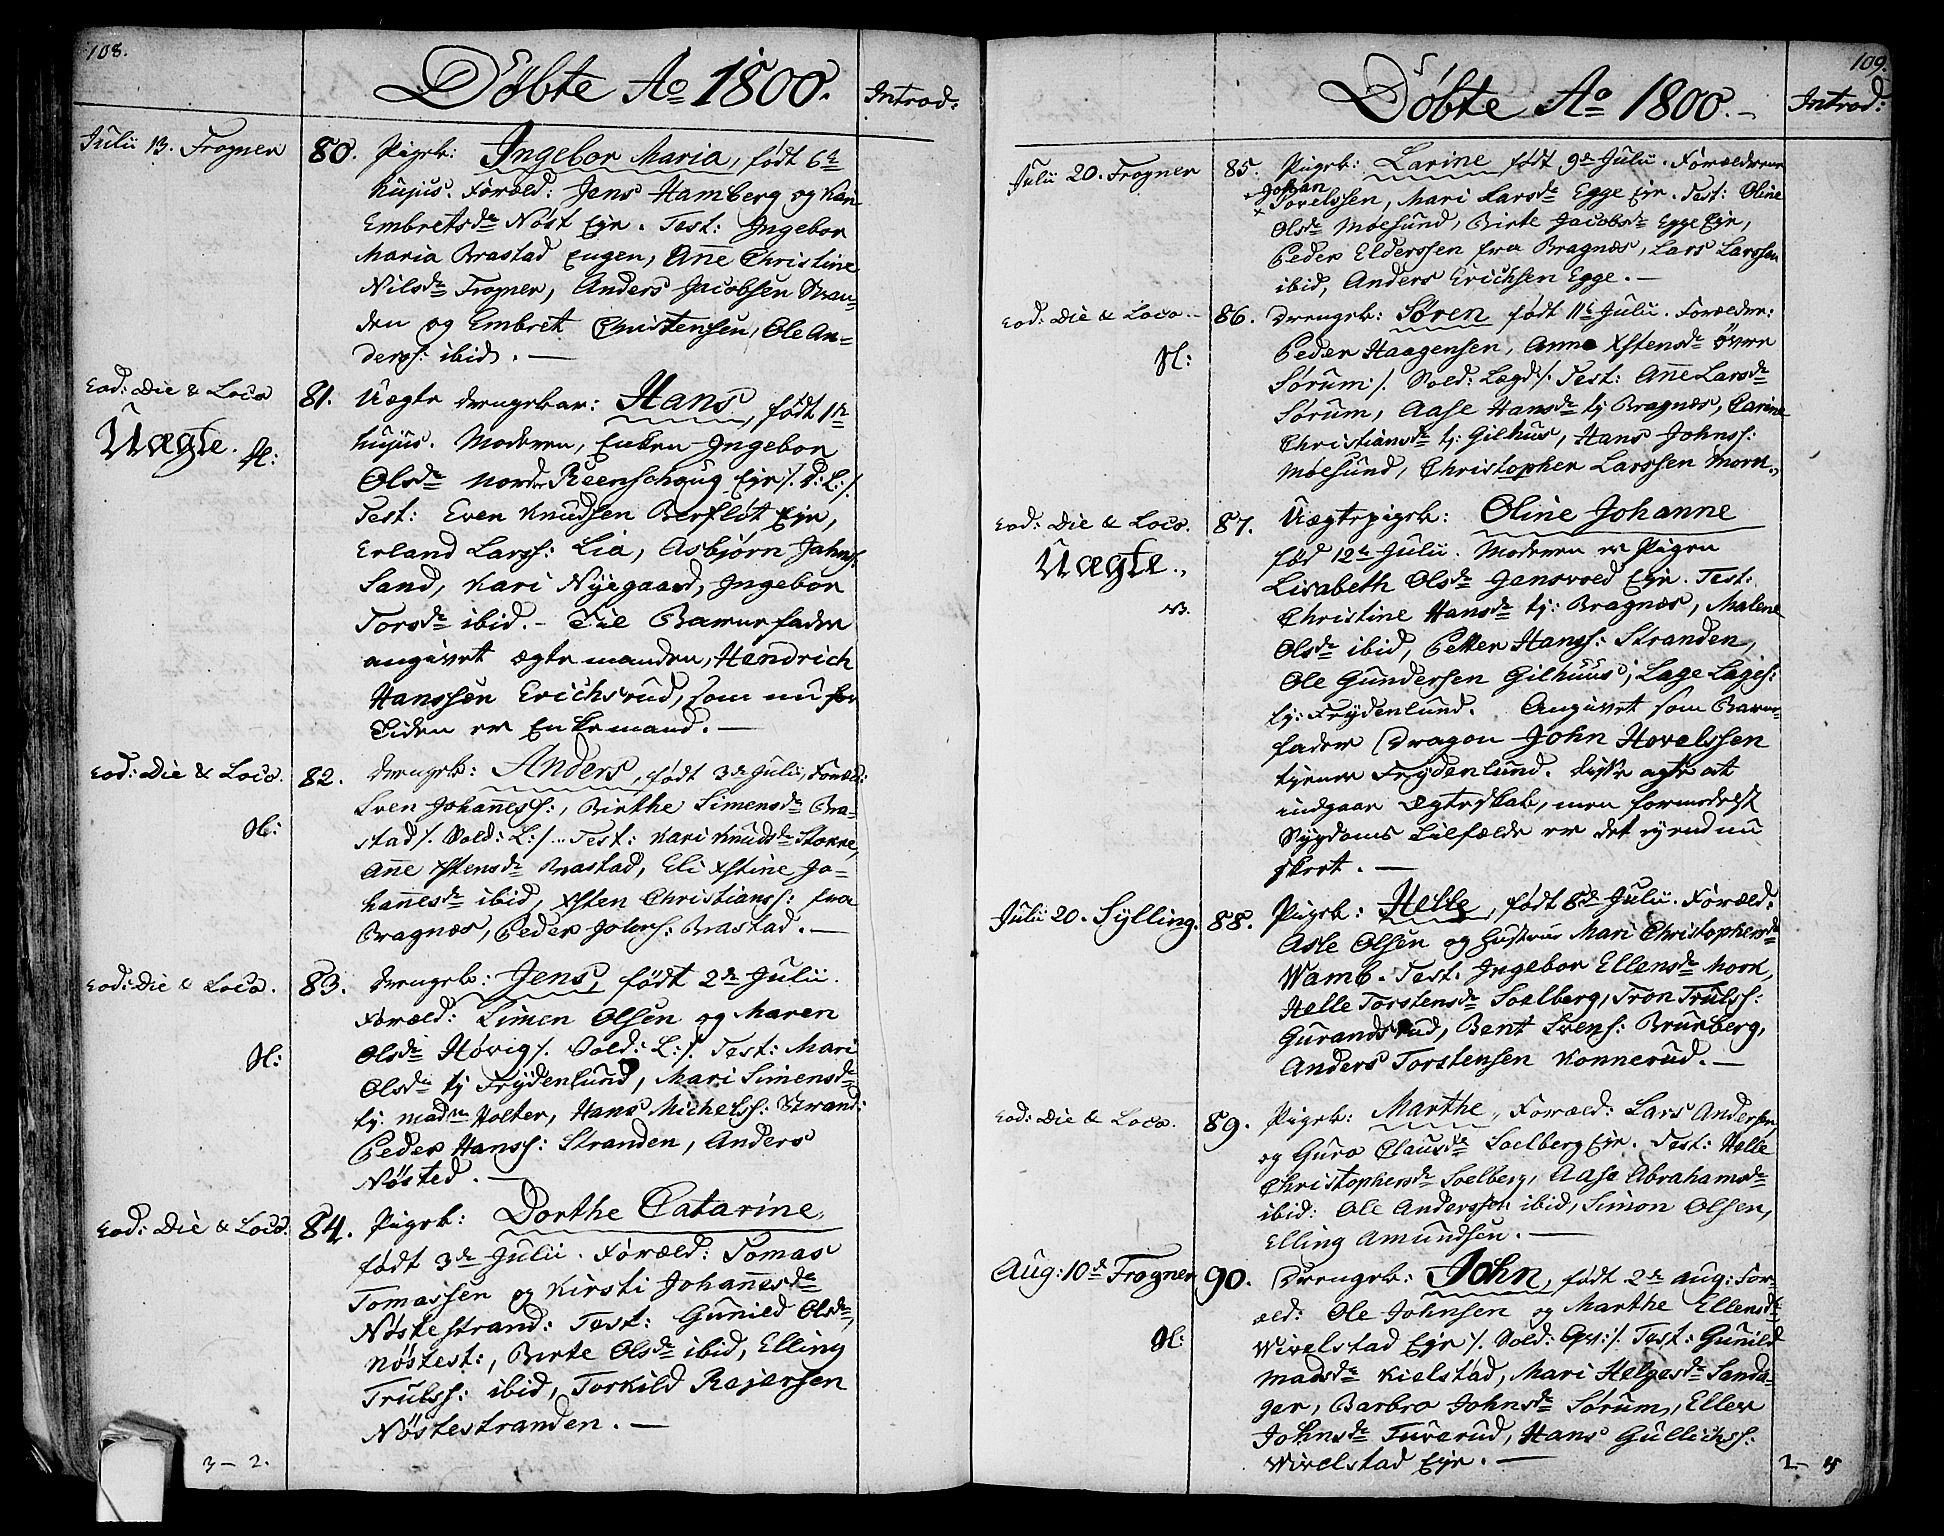 108.
Döbte Ao 1800.
Introd:
Julii 13. Frogner
80. Pigeb: Ingebor Maria, födt 6te
hujus. Foræld: Jens Hamberg og Kari
Embretsdr Nöst Eje. Test: Ingebor
Maria Brastad Eugen, Ane Christine
Nilsdr Frogner, Anders Jacobsen Stran-
den og Embret Christensen, Ole An-
derss: ibid. —
Eod: Die & Loco
81. Uægte drengebar: Hans, födt 1te
Uægte.
hujus. Moderen, Enken Ingebor
Olsdr nordr Reenschoug Eje /. D: L: /.
Test: Even Knudsen Berflöt Eje,
Erland Larss: Lia, Asbjörn Johns:
Sand, Kari Nyegaard, Ingebor
Torsdr ibid. – Til Barnefader
angivet ægte manden, Hendrich
Hanssen Erichsrud, som nu for
Tiden er Enkemand. —
Eod: Die & Loco.
82. drengeb: Anders, födt 3de Julii, Foræld:
Sven Johaness:, Birthe Simensdr Bra-
stad /. Sold: L: /. .. Test: Kari Knudsdr Stokke,
Ane Xstensdr Brastad, Eli Xstine Jo-
hanesdr ibid, Xsten Christianss: fra
Bragnæs, Peder Johns: Brastad. —
Eod: Die & Loco.
83. drengeb: Jens, födt 2de Julii.
Foræld: Simen Olsen og Maren
Olsdr Hövig /. Sold: L: /. Test: Mari
Olsdr tj Frydenlund, Mari Simensdr
tj. madm Holter, Hans Michelss: Strand:
Peder Hanss: Stranden, Anders
Nösted. —
Eod: Die & Loco:
84. Pigeb: Dorthe Catarine,
födt 3de Julii. Foræld: Tomas
Tomassen og Kirsti Johanesdr
Nöstestrand: Test: Gunild Olsdr,
nöstest:, Birte Olsdr ibid, Elling
Trulss: ibid, Torkild Rejersen
Nöstestranden. —
3 – 2.
109.
Döbte Ao 1800. –
Introd:
Julii 20. Frogner
85. Pigeb: Larine födt 9de Julii. Forældrene
+ Johan
× Tovelssen, Mari Larsdr Egge Eje. Test: Oline
Olsdr Möesund, Birte Jacobsdr Egge Eje,
Peder Elderssen fra Bragnæs, Lars Larssen
ibid, Anders Erichsen Egge. —
Eod: Die & Loco. –
86. drengeb: Sören födt 11te Julii. Forælder:
Peder Haagensen, Anne Xstensdr övre
Sörum: /. Sold: Lægd: /. Test: Ane Larsdr
Sörum, Aase Hansdr tj Bragnæs, Carine
Christiansdr tj: Gilhus, Hans Johnss:
Möesund, Christopher Larssen Mork.,
Eod: Die & Loco.
87. Uægte pigeb: Oline Johanne
Uægte.,
NB.
föd 12te Julii. Moderen er Pigen
Lisabeth Olsdr Jensvold Eje. Test:
Christine Hansdr tj: Bragnæs, Malene
Olsdr ibid, Petter Hanss: Stranden,
Ole Gundersen Gilhuus, Lage Lages:
tj: Frydenlund. Angivet som Barne-
fader Dragon John Hovelssen
tjener Frydenlund. disse agte at
indgaae Ægteskab, men formedelst
Sygdoms Tilfælde er det ej endnu
skeet. —
Julii 20. Sylling.
88. Pigeb: Helle, födt 8de Julii. Foræld:
Asle Olsen og Hustrue Mari Christophersdr
Wamb. Test: Ingebor Ellensdr Mork,
Helle Torstensdr Soelberg, Tron Trulss:
Gurandsrud, Bent Svens: Brunberg,
Anders Torstensen Konnerud. —
Eod: Die & Loco.
89. Pigeb: Marthe, Foræld: Lars Andersen
og Guro Clausdr Soelberg Eje. Test: Helle
Christophersdr Soelberg, Aase Abrahamsdr
ibid: Ole Anderssen ibid, Simon Olsen,
Elling Amundsen. —
Aug: 10de Frogner
90. Drengeb: John, födt 2de Aug: For-
æld: Ole Johnsen og Marthe Ellensdr
Wivelstad Eje /. Sold: Qv: /. Test: Gunild
Madsdr Kielstad, Mari Helgesdr Sanda-
ger, Barbro Johnsdr Sörum, Ellev
Johnsdr Tuverud, Hans Gullichss:
Wivelstad Eje. —